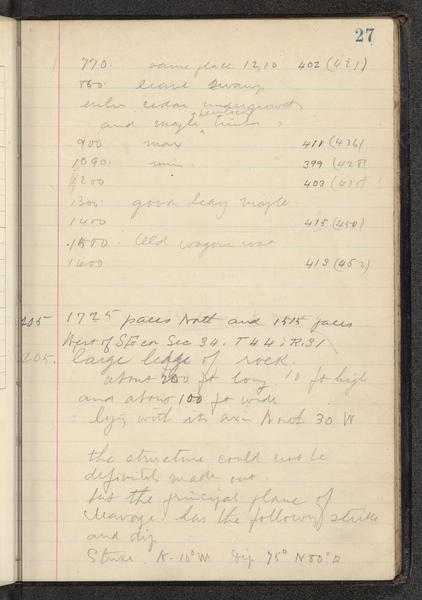 27
770. same place 12,10 402 (421)
leave swamp
enter cedar undergrowth
hemlock
and maple timber
900 max 411 (436)
1090. min. 399 (428)
1200 403 (435)
1300. good heavy maple
1400 415 (450)
1500 Old wagon road
1600 413 (452)
205 1725 paces North and 1515 paces
West of SE cor Sec 34. T44, R.31
205. large ledge of rock.
about 200 ft long 10 ft high
and about 100 ft wide
lying with its axis North 30 W
the structure could not be
definitely made out.
but the principal plane of
cleavage has the following strike
and dip
Strike N-10°W Dip 75° N80°